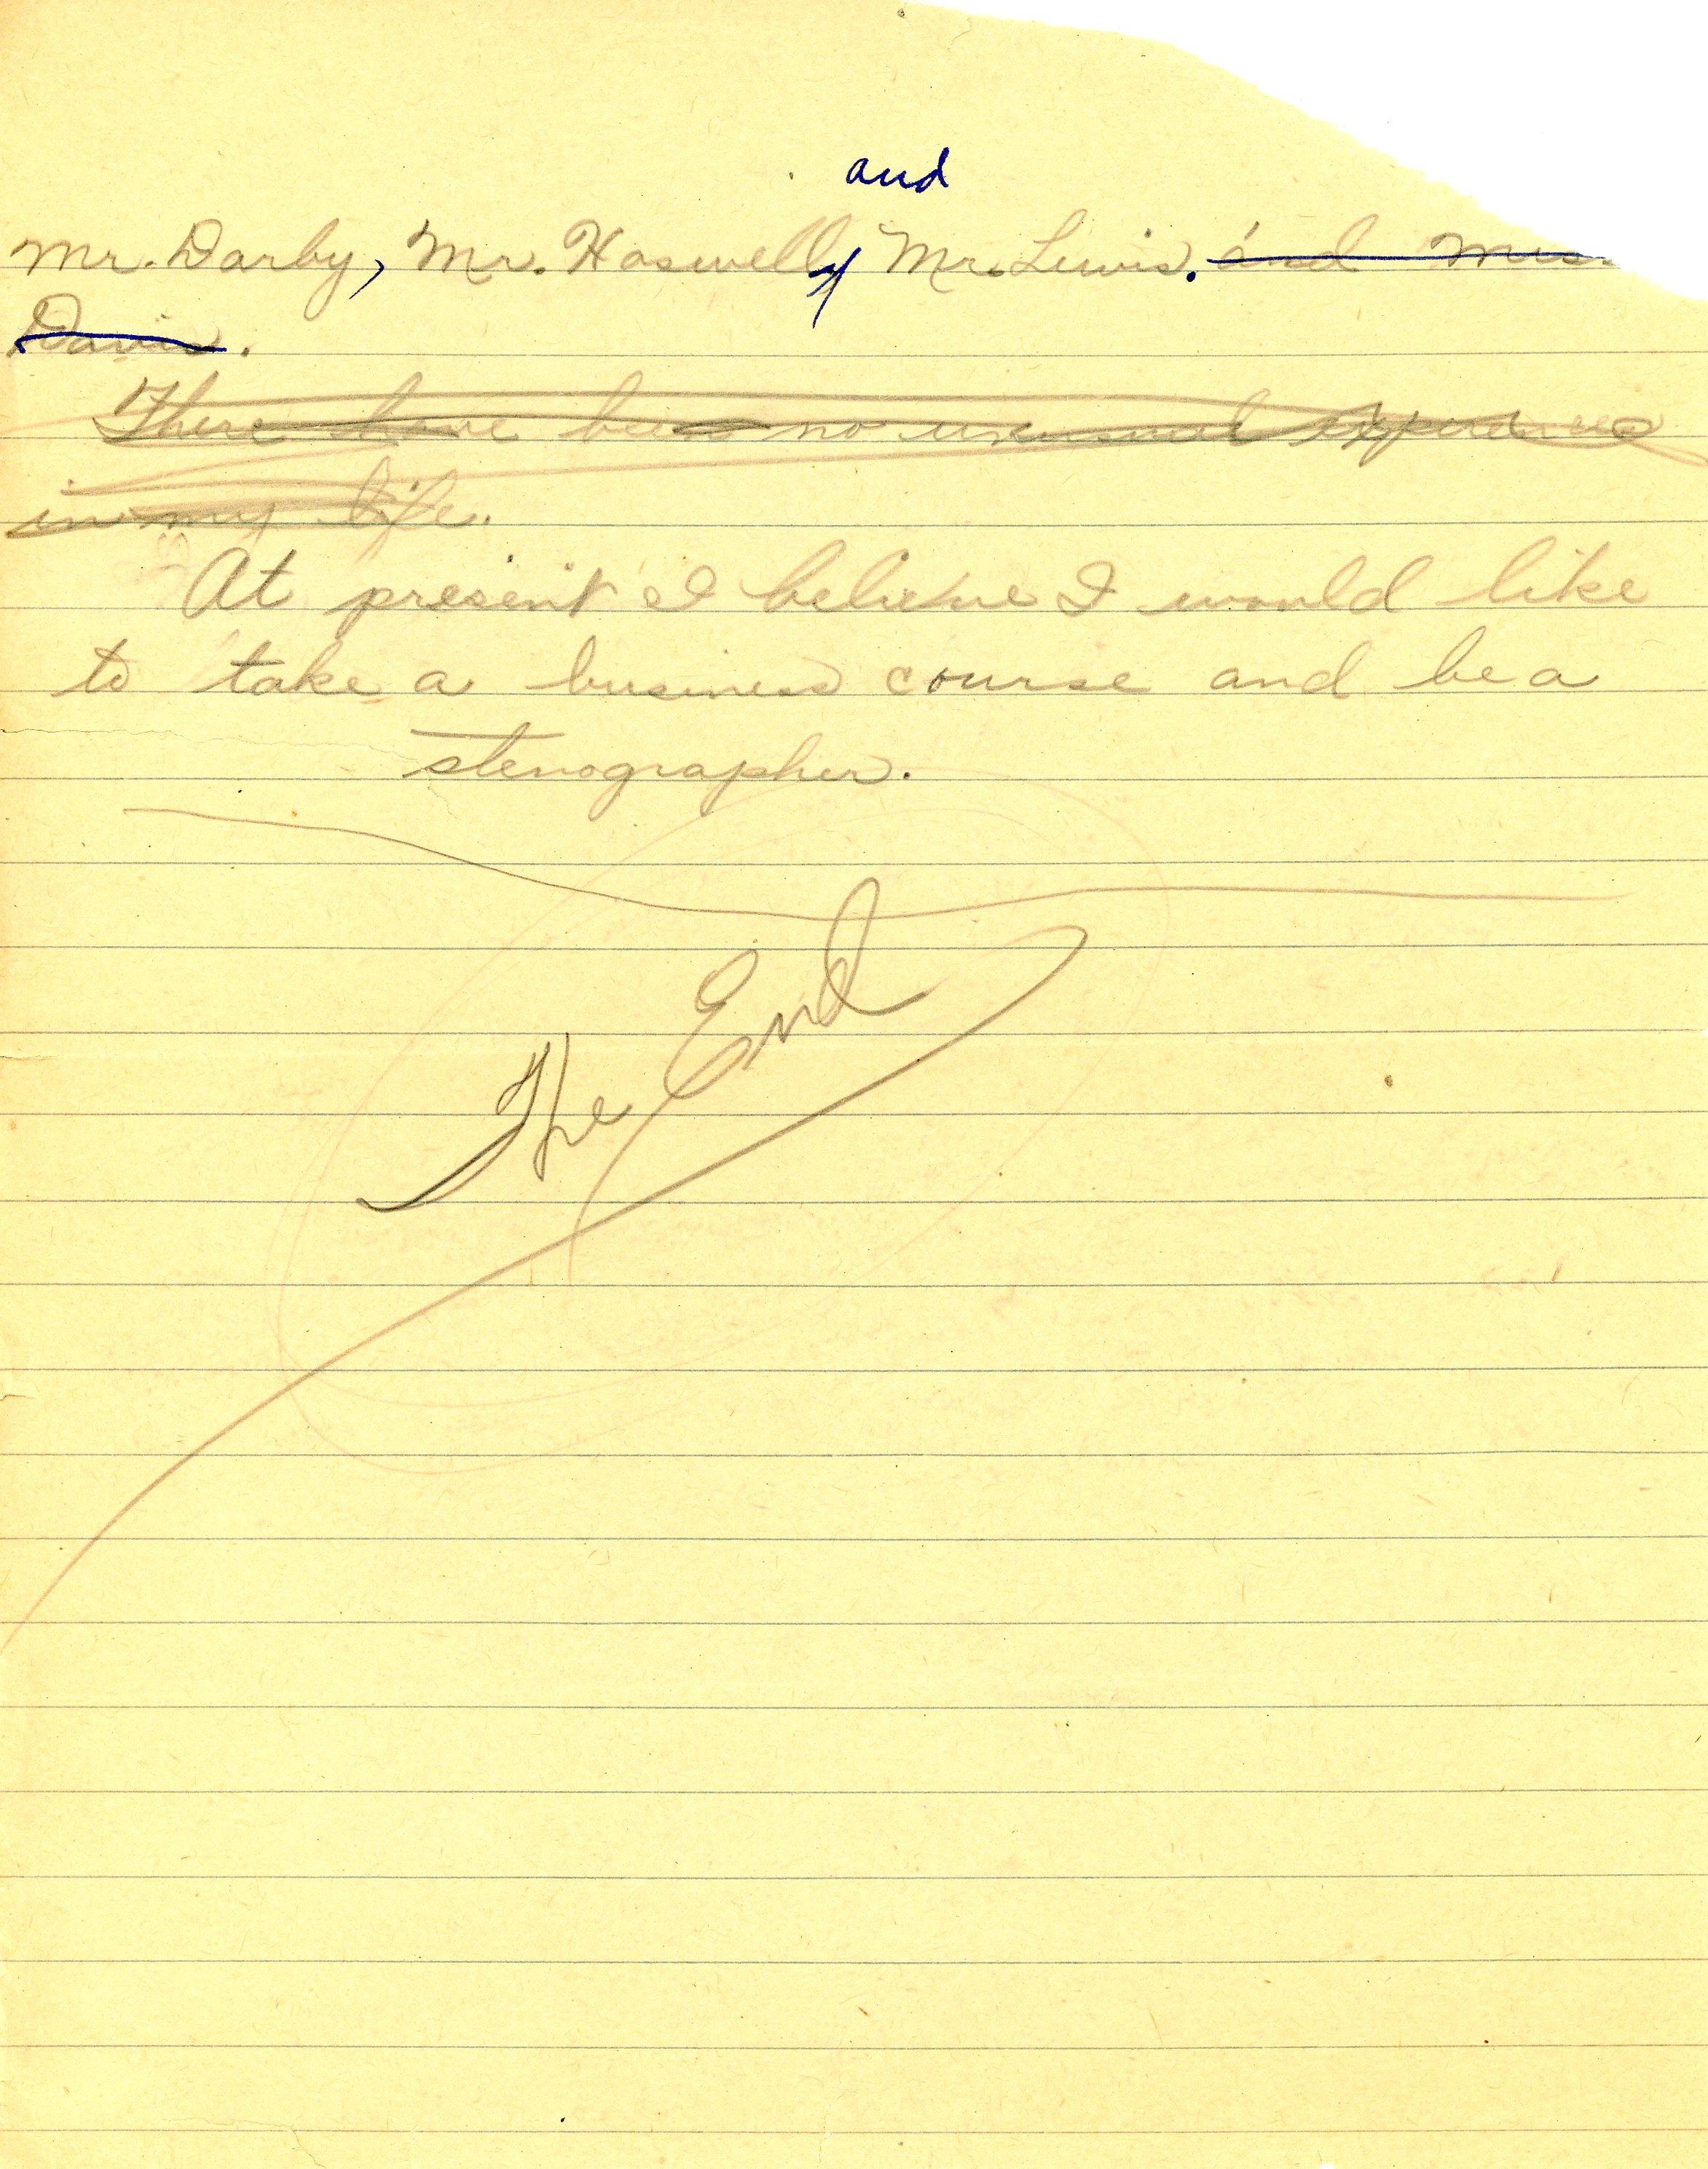 and
Mr. Darby, Mr. Haswell, Mr. Lewis. and Mrs.
Davis.
There have been no unusual experiences
in my life.
At present I believe I would like
to take a business course and be a
stenographer.
The End